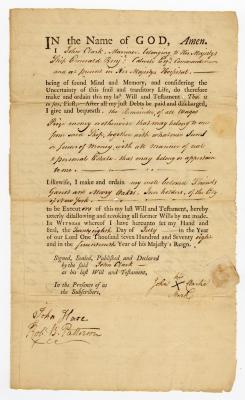 IN the Name of GOD, Amen.
I John Clark Mariner belonging to His Majestys
Ship Emerald Benj. Caldwell Esq. Commander
and at present in His Majestys Hospital
being of sound Mind and Memory, and considering the
Uncertainty of this frail and transitory Life, do therefore
make and ordain this my last Will and Testament. That is
to say, First, After all my just Debts be paid and discharged,
I give and bequeath the Remainder of all Wages
Prize money or otherwise that may belong to me
from said Ship, together with whatever Sum
or Sums of Money with all manner of real
& personal Estate that may belong or appertain
to me
Likewise, I make and ordain my
Francis and Mary of the City
of New York
to be Executors of this my last Will and Testament, hereby
utterly disallowing and revoking all former Wills by me made.
In Witness whereof I have hereunto set my Hand
and Seal, the Twenty eighth Day of July in the Year
of our Lord One Thousand Seven Hundred and Seventy eight
and in the Year of his Majesty's Reign.
Signed, Sealed, Published and Declared
by the said John Clark
as his last Will and Testament,
In the Presence of us
the Subscribers,
his
John X Clarke
Mark
John Hare
Rob. B. Patterson